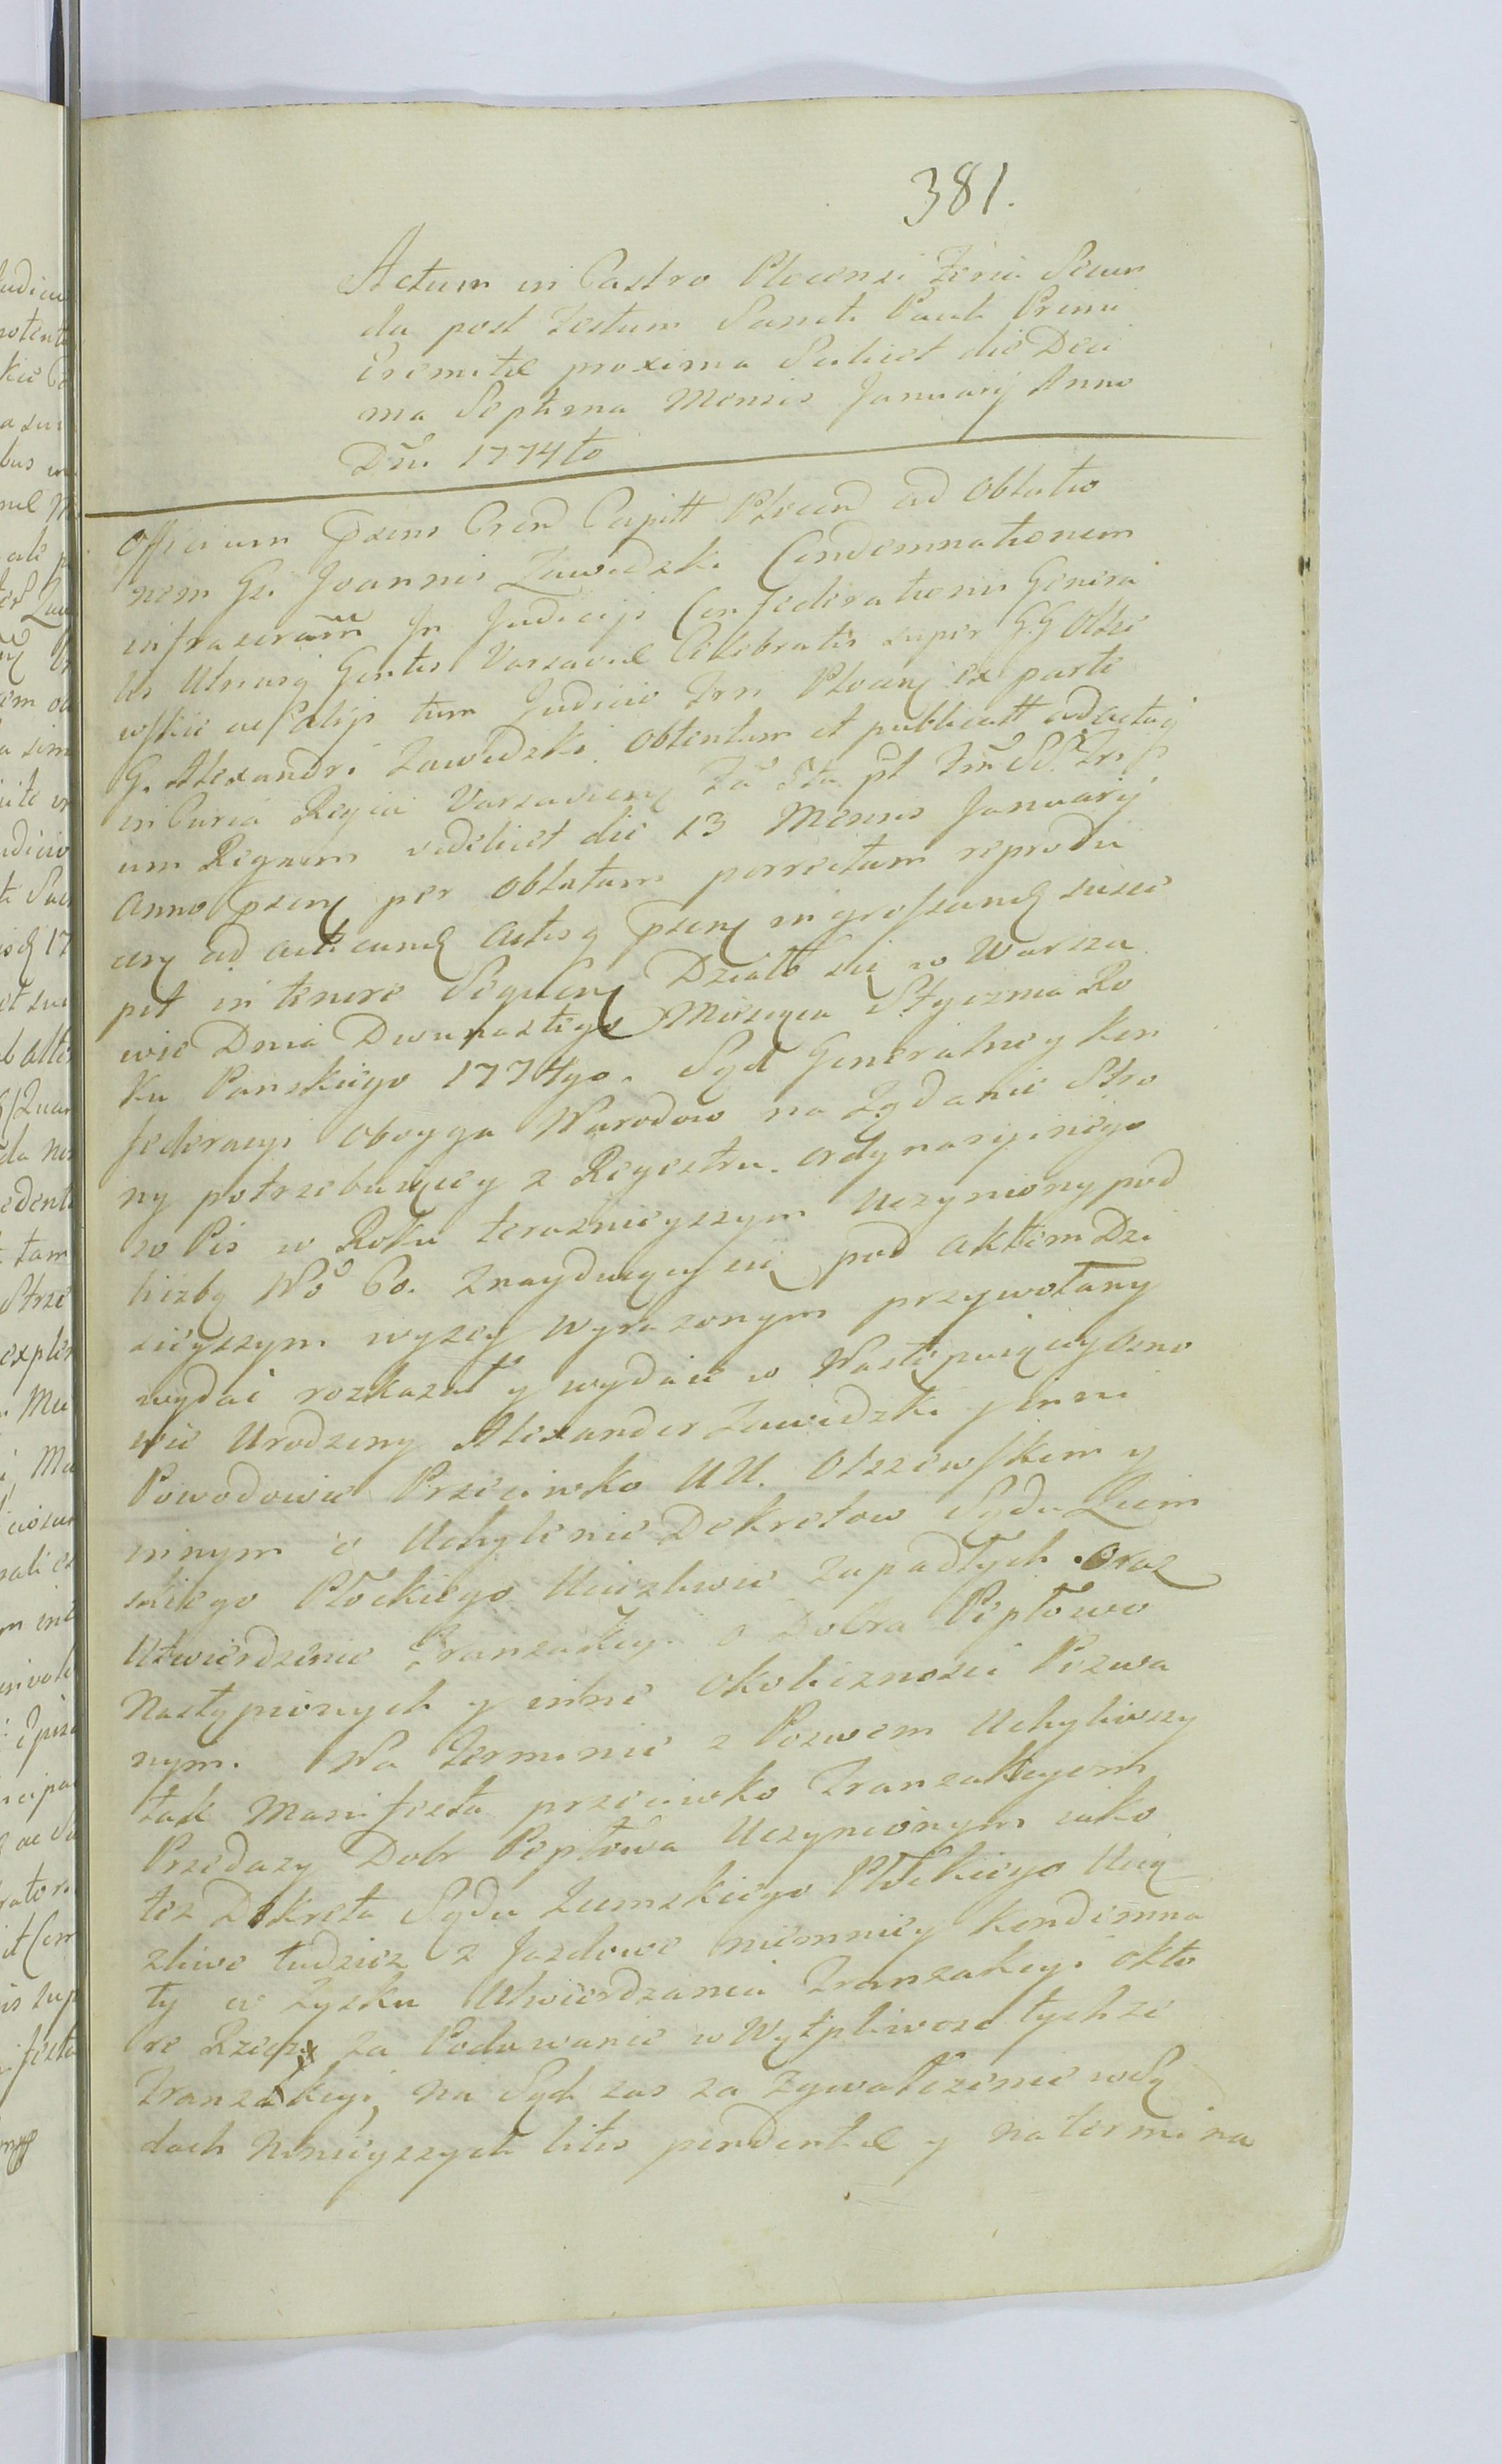 381.
Actum in Castro Plocensi Feria Secun
da post Festum Sancti Pauli Primi
Eremitæ proxima Scilicet die Deci
ma Septima Mensis January Anno
Dñi 1774to
Officium Præns Cren Capitt Plocen ad oblatio
nem Gsi Joannis Zawidzki Condemnationem
infrascram In Judicijs Confederationis Genera
lis Utriusq Gentis Varsaviæ Celebratis super G.G Olsze
wskie ac alijs tum Judicio Trri Plocens ex parte
G. Alexandri Zawidzki obtentum et publicatt ad acta
in Curia Regia Varsaviens Fa 5ta pt Fm SS. Tri
um Regnum videlicet die 13 Mensis January
Anno præns per oblatam porrectam reprodu
cen ad acticand actisq præns ingrossand susce
pit in tenore Sequen Działo się w Warsza
wie Dnia Dwunastego Miesiąca Stycznia Ro
ku Panskiego 1774tgo. Sąd Generalney Kon
federacyi oboyga Narodow na Żądanie Stro
ny potrzebuiącey z Regestru ordynaryinego
wPis w Roku teraznieyszym Uczyniony pod
liczbą No 60. Znayduiący się pod aktem Dzi
sieyszym wyzey wyrazonym przywołany
wydać rozkazał y wydaie w Następuiący osno
wie Urodzeny Alexander Zawidzki y inni
Powodowie Przeciwko UU. Olszewskim y
innym o Uchylenie Dekretow Sądu Ziem
skiego Płockiego Uciążliwie zapadłych oraz
Utwierdzenie Tranzakcyi o Dobra Pepłowo
Nastąpionych y inne okolicznosci Pozwa
nym. Na Terminie z Pozwem Uchyliwszy
tak Manifesta przeciwko Tranzakcyom
Przedazy Dobr Pepłowa Uczynionym iako
tez Dekreta Sądu Ziemskiego Płockiego Ucią
zliwe tudziez z Jazdowe niemniey kondemna
ty w zysku Utwierdzania Tranzakcyi okto
re Rzecz za Podawanie w Wątpliwosc tychze
Tranzakcyi, na Sąd zas za zgwałcenie wSą
dach Ninieyszych litis pendentiæ y na termina